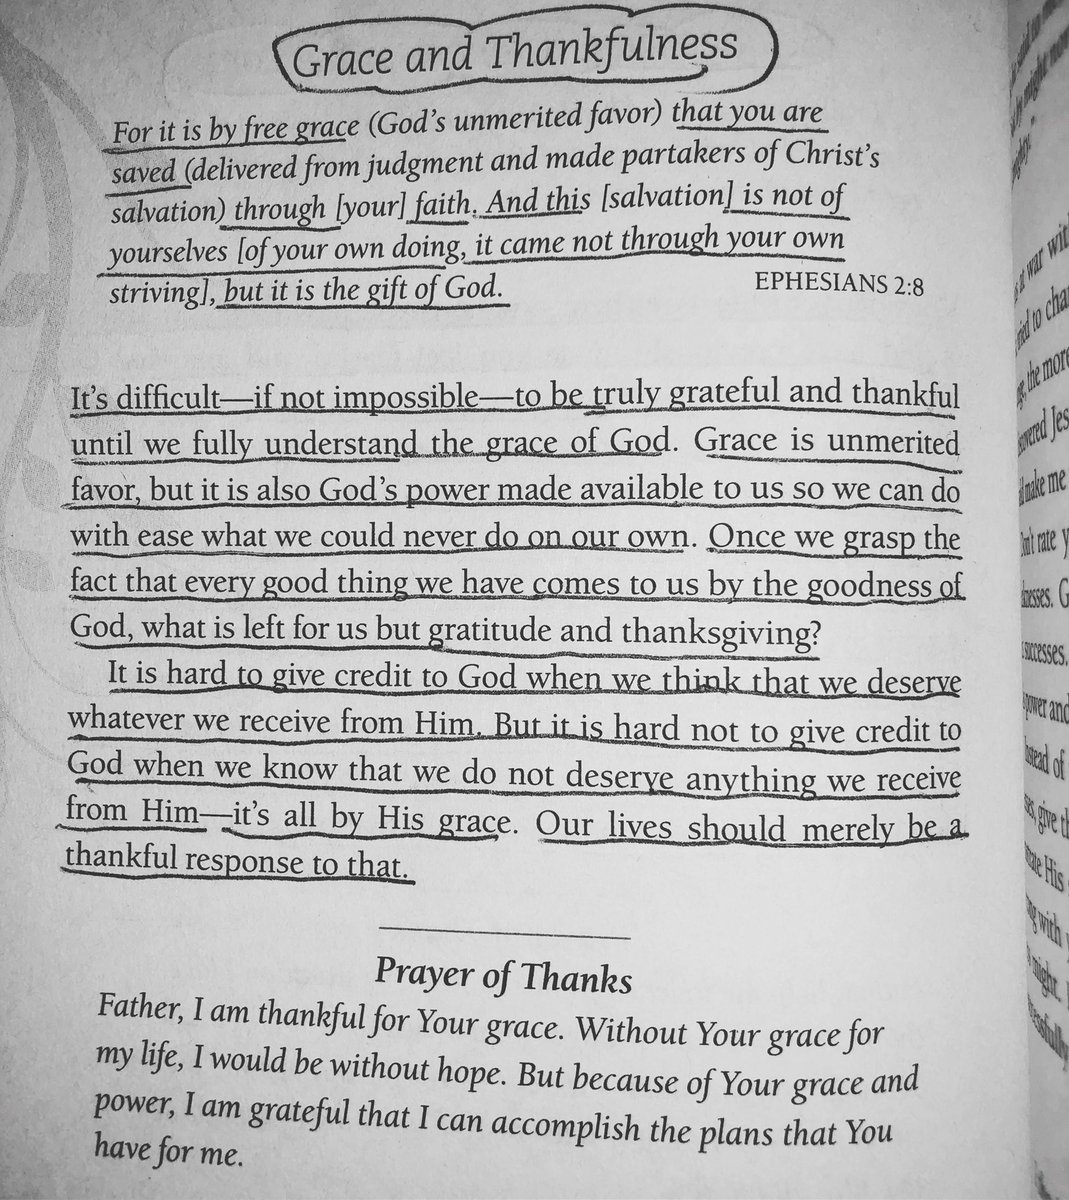 Grace and Thankfulness
For it is by free grace (God's unmerited favor) that you are
saved (delivered from judgment and made partakers of Christ's
salvation) through [your] faith. And this [salvation] is not of
yourselves [of your own doing, it came not through your own
striving], but it is the gift of God.
EPHESIANS 2:8
It's difficult—if not impossible—to be truly grateful and thankful
until we fully understand the grace of God. Grace is unmerited
favor, but it is also God's power made available to us so we can do
with ease what we could never do on our own. Once we grasp the
fact that every good thing we have comes to us by the goodness of
God, what is left for us but gratitude and thanksgiving?
It is hard to give credit to God when we think that we deserve
whatever we receive from Him. But it is hard not to give credit to
God when we know that we do not deserve anything we receive
from Him—it's all by His grace. Our lives should merely be a
thankful response to that.
Prayer of Thanks
Father, I am thankful for Your grace. Without Your grace for
my life, I would be without hope. But because of Your grace and
power, I am grateful that I can accomplish the plans that You
have for me.
war with
to
the more
Jes
make me
rate
G
successes.
power and
of
give
His
with
might.